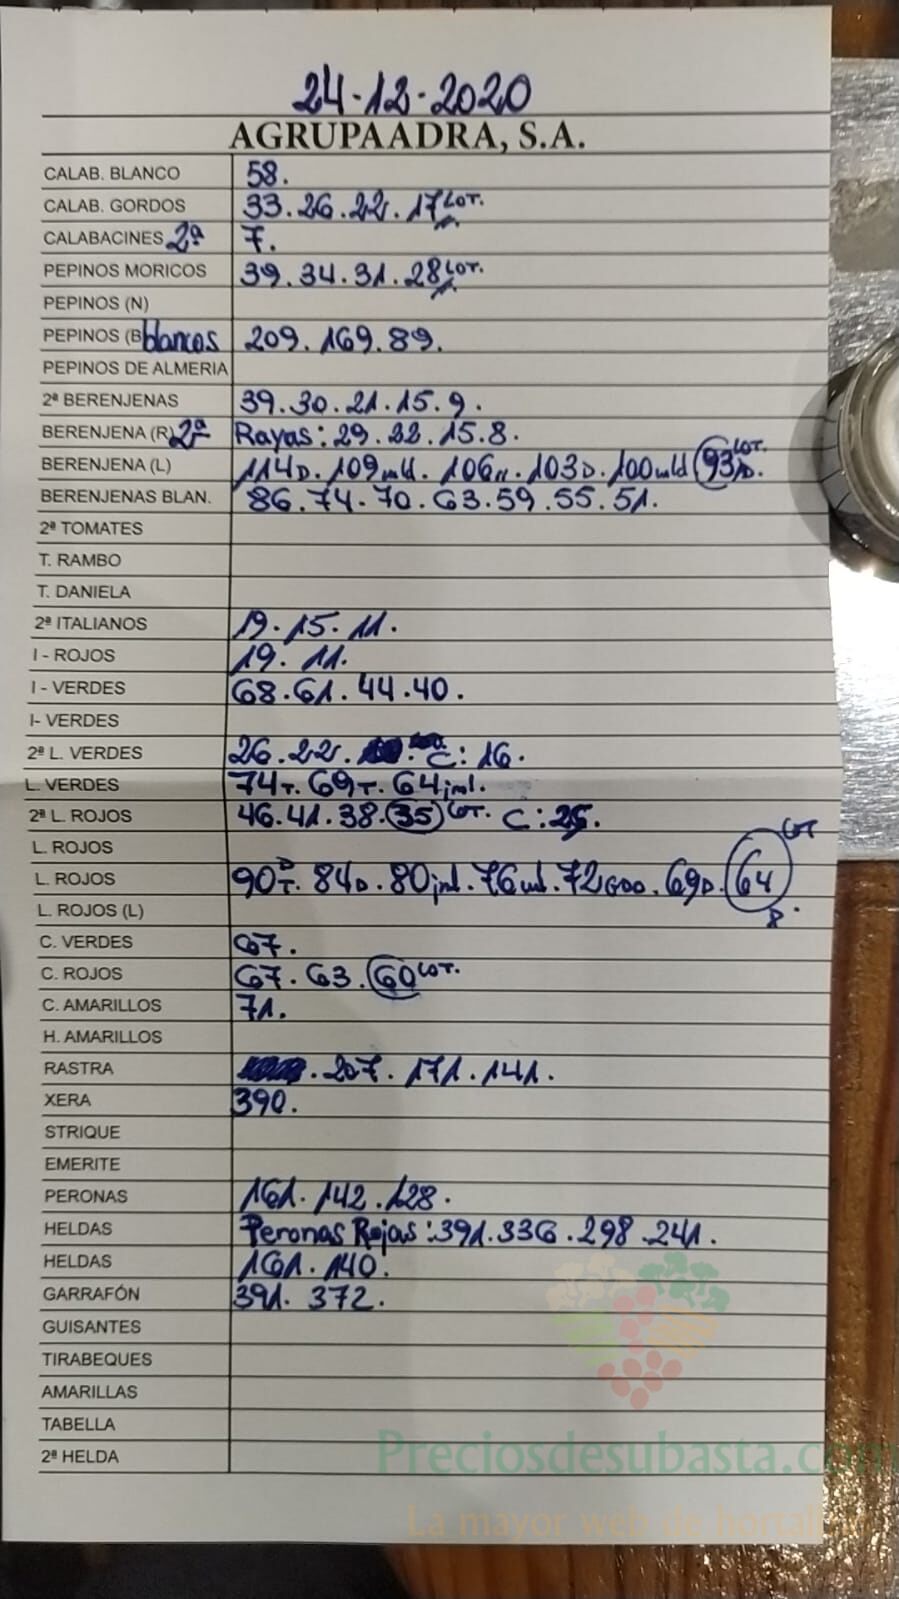 24-12-2020
AGRUPAADRA, S.A.
CALAB. BLANCO 58.
CALAB. GORDOS 33.26.22.17 LOT.
CALABACINES 2ª 7.
PEPINOS MORICOS 39.34.31.28 LOT.
PEPINOS (N)
PEPINOS (B blancos 209.169.89.
PEPINOS DE ALMERIA
2ª BERENJENAS 39.30.21.15.9.
BERENJENA (R) 2ª Rayas: 29.22.15.8.
BERENJENA (L) 114D. 109mld. 106 . 103D. 100mld 93D. LOT.
BERENJENAS BLAN. 86.74.70.63.59.55.51.
2ª TOMATES
T. RAMBO
T. DANIELA
2ª ITALIANOS 19.15.11.
I - ROJOS 19.11.
I - VERDES 68.61.44.40.
I- VERDES
2ª L. VERDES 26.22. C: 16.
L. VERDES 74T. 69T. 64jml.
2ª L. ROJOS 46.41.38.35 LOT. C:
L. ROJOS
L. ROJOS 90 D T. 84D. 80jml. 76ml. 72GOO. 69D. 64 LOT 8.
L. ROJOS (L)
C. VERDES 67.
C. ROJOS 67.63.60 LOT.
C. AMARILLOS 71.
H. AMARILLOS
RASTRA .207.171.141.
XERA 390.
STRIQUE
EMERITE
PERONAS 161.142.128.
HELDAS Peronas Rojas: 391.336.298.241.
HELDAS 161.140.
GARRAFÓN 391.372.
GUISANTES
TIRABEQUES
AMARILLAS
TABELLA
2ª HELDA
Preciosdesubasta.com
La mayor web de hortali